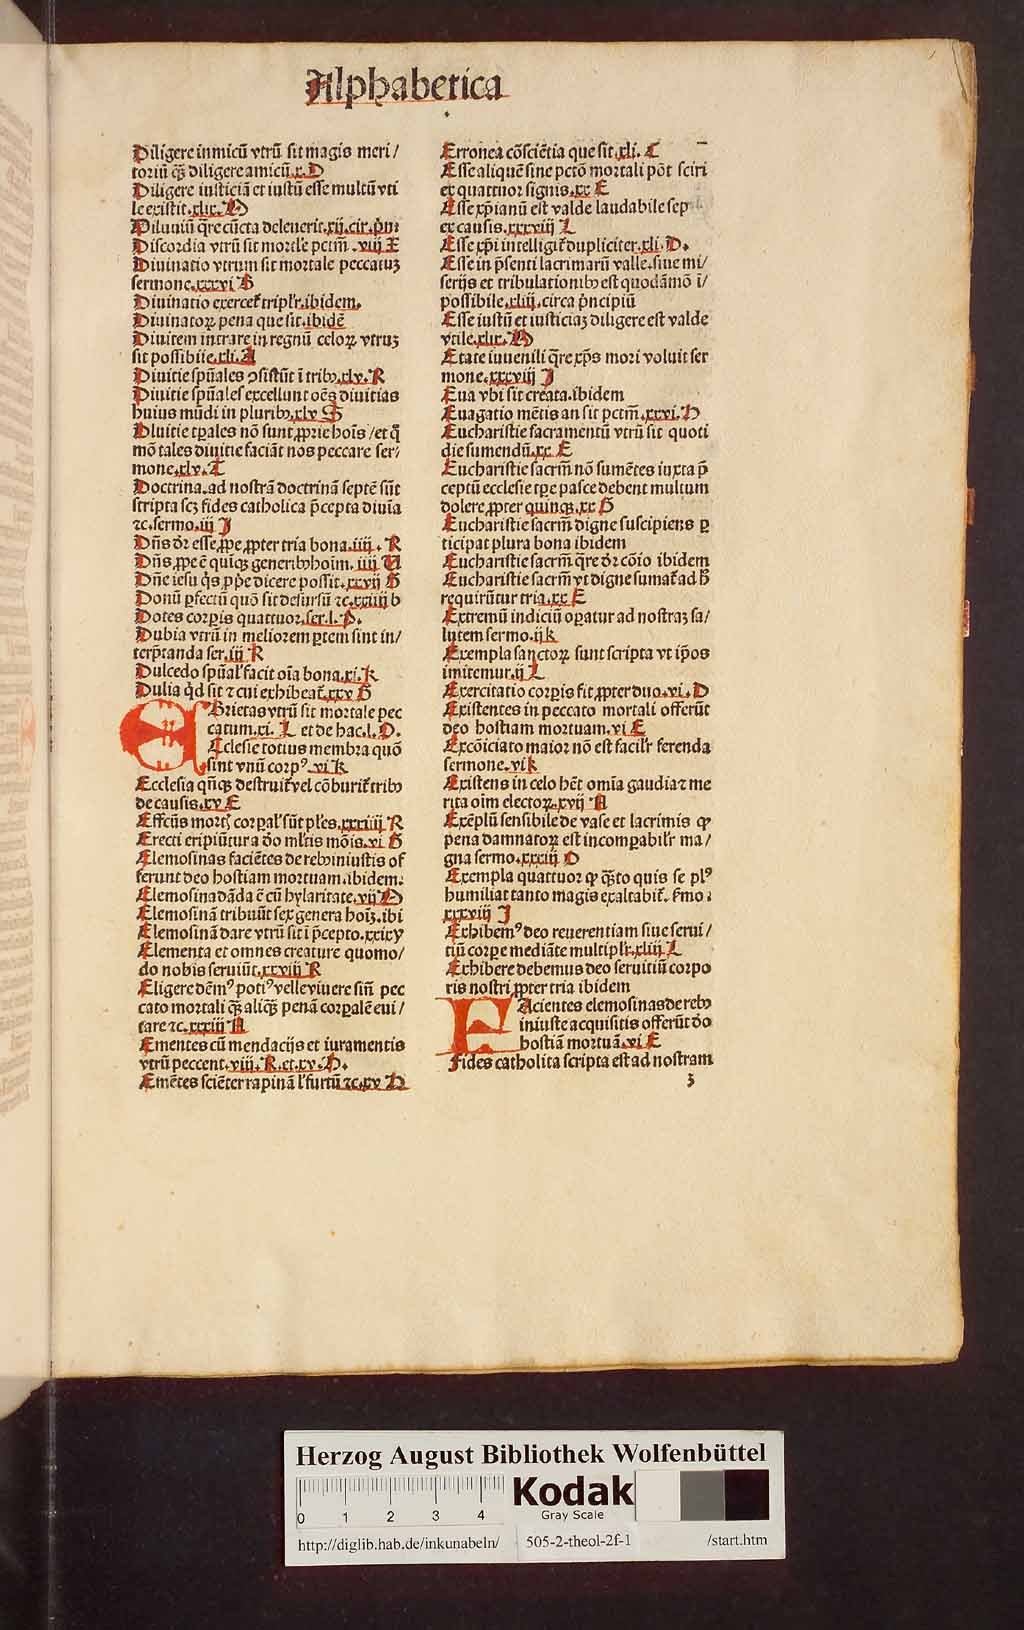 Alphabetica
Diligere inimicū vtrū sit magis meri/
toriū qȝ diligere amicū .x. D
Diligere iusticiā et iustū esse multū vti
le existit .xlix. N
Diluuiū q̄re cūcta deleuerit .xij. cir. p̄in
Discordia vtrū sit mortle pctm̄ .viij X
Diuinatio vtrum sit mortale peccatuȝ
sermone .xxxvi B
Diuinatio exercet tripl'r .ibidem.
Diuinatoꝝ pena que sit .ibidē
Diuitem intrare in regnū celoꝝ vtruȝ
sit possibile .xli. A
Diuitie spūales ꝯsistūt ī tribꝰ .xlv. R
Diuitie spūales excellunt oēs diuitias
huius mūdi in pluribꝰ .xlv S
Diuitie tꝑales nō sunt ꝓprie hoīs /et q̊
mō tales diuitie faciāt nos peccare ser/
mone .xlv. T
Doctrina .ad nostrā doctrinā septē sūt
scripta scȝ fides catholica p̄cepta diuīa
⁊c. sermo .iij J
Dn̄s dr̄ esse ꝓpe ꝓpter tria bona .iiij. R
Dn̄s ꝓpe ē quīqȝ generibꝰ hoīm. iiij
Dn̄e iesu q̇s ꝑ p̄pe dicere possit .xxvij B
Donū ꝑfectū quō sit desursū ⁊c. xxiiij b
Dotes corꝑis quattuor .ser. l. P.
Dubia vtrū in meliorem ꝑtem sint in/
terp̄tanda ser .iij R
Dulcedo spūal' facit oīa bona .xi. K
Dulia q̇d sit ⁊ cui exhibeat .xxv B
EBrietas vtrū sit mortale pec
catum .xi. L et de hac .l. O.
Ecclesie totius membra quō
sint vnū corpꝰ .vi K
Ecclesia qn̄qȝ destruit' vel cōburit' tribꝰ
de causis .xv E
Effcūs mort corꝑal' sūt ples .xxxiiij R
Erecti eripiūtur a dō ml'tis mōis .vi B
Elemosinas faciētes de rebꝰ iniustis of
ferunt deo hostiam mortuam .ibidem.
Elemosina dāda ē cū hylaritate .vij O
Elemosinā tribuūt sex genera hoīȝ .ibi
Elemosinā dare vtrū sit ī p̄cepto .xxix y
Elementa et omnes creature quomo/
do nobis seruiūt .xxviij R
Eligere dēmꝰ potiꝰ velle viuere siñ pec
cato mortali qȝ aliqȝ penā corꝑalē eui/
tare ⁊c. xxxiij A
Ementes cū mendacijs et iuramentis
vtrū peccent .viij. R. et .xv. H.
Emētes sciēter rapinā l' furtū ⁊c. xv H
Erronea cōsciētia que sit .xli. C
Esse aliquē sine pctō mortali pōt sciri
ex quattuor signis .xx E
Esse xp̄ianū est valde laudabile sep
ex causis .xxxviij L
Esse xp̄i intelligit' dupliciter .xli. D.
Esse in p̄senti lacrimarū valle .siue mi/
serijs et tribulationibꝰ est quodāmō ī/
possibile .xliij. circa p̄ncipiū
Esse iustū et iusticiaȝ diligere est valde
vtile .xlix. N
Etate iuuenili q̄re xp̄s mori voluit ser
mone .xxxviij J
Eua vbi sit creata .ibidem
Euagatio mētis an sit pctm̄ .xxvi. H
Eucharistie sacramentū vtrū sit quoti
die sumendū .xx E
Eucharistie sacrm̄ nō sumētes iuxta p̄
ceptū ecclesie tꝑe pasce debent multum
dolere ꝓpter quinqȝ .xx B
Eucharistie sacrm̄ digne suscipiens ꝑ
ticipat plura bona ibidem
Eucharistie sacrm̄ q̄re dr̄ cōio ibidem
Eucharistie sacrm̄ vt digne sumat' ad h̄
requirūtur tria .xx E
Extremū iudiciū oꝑatur ad nostraȝ sa/
lutem sermo .ij k
Exempla sanctoꝝ sunt scripta vt ip̄os
imitemur .ij L
Exercitatio corꝑis fit ꝓpter duo .vi. D
Existentes in peccato mortali offerūt
deo hostiam mortuam .vi E
Excōiciato maior nō est facil'r ferenda
sermone .vi k
Existens in celo het omīa gaudia ⁊ me
rita oīm electoꝝ .xvij A
Exēplū sensibile de vase et lacrimis ꝙ
pena damnatoꝝ est incomꝑabil'r ma/
gna sermo .xxxiij O
Exempla quattuor ꝙ qȝto quis se plꝰ
humiliat tanto magis exaltabit'. ẜmo .
xxxviij J
Exhibemꝰ deo reuerentiam siue serui/
tiū corꝑe mediāte multipl'r .xliij L
Exhibere debemus deo seruitiū corpo
ris nostri ꝓpter tria ibidem
FAcientes elemosinas de rebꝰ
iniuste acquisitis offerūt dō
hostiā mortuā .vi E
Fides catholica scripta est ad nostram
3
Herzog August Bibliothek Wolfenbüttel
0 1 2 3 4
Kodak
Gray Scale
http://diglib.hab.de/inkunabeln/ 505-2-theol-2f-1 /start.htm